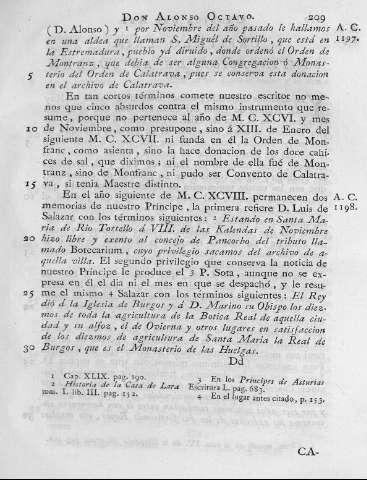 DON ALONSO OCTAVO. 209
(D. Alonso) y 1 por Noviembre del año pasado le hallamos A. C.
en una aldea que llaman S. Miguél de Sortillo, que está en 1197.
la Estremadura, pueblo yá diruido, donde ordenó el Orden de
Montranz, que debia de ser alguna Congregacion ó Monas-
5 terio del Orden de Calatrava, pues se conserva esta donacion
en el archivo de Calatrava.
En tan cortos términos comete nuestro escritor no me-
nos que cinco absurdos contra el mismo instrumento que re-
sume, porque no pertenece al año de M. C. XCVI. y mes
10 de Noviembre, como presupone, sino á XIII. de Enero del
siguiente M. C. XCVII. ni funda en él la Orden de Mon-
franc, como asienta, sino la hace donacion de los doce cahi-
ces de sal, que diximos; ni el nombre de ella fué de Mon-
tranz, sino de Monfranc, ni pudo ser Convento de Calatra-
15 va, si tenia Maestre distinto.
En el año siguiente de M. C. XCVIII. permanecen dos A. C.
memorias de nuestro Príncipe, la primera refiere D. Luis de 1198.
Salazar con los términos siguientes: 2 Estando en Santa Ma-
ria de Rio Tortello á VIII. de las Kalendas de Noviembre
20 hizo libre y exento al concejo de Pancorbo del tributo lla-
mado Botecarium, cuyo privilegio sacamos del archivo de a-
quella villa. El segundo privilegio que conserva la noticia de
nuestro Príncipe le produce el 3 P. Sota, aunque no se ex-
presa en él el dia ni el mes en que se despachó, y le resu-
25 me el mismo 4 Salazar con los términos siguientes: El Rey
dió á la Iglesia de Burgos y á D. Marino su Obispo los diez-
mos de toda la agricultura de la Botica Real de aquella ciu-
dad y su alfoz, el de Ovierna y otros lugares en satisfaccion
de los diezmos de agricultura de Santa Maria la Real de
30 Burgos, que es el Monasterio de las Huelgas.
Dd
1 Cap. XLIX. pag. 190.
2 Historia de la Casa de Lara
tom. I. lib. III. pag. 152.
3 En los Principes de Asturias
Escritura L. pag. 683.
4 En el lugar antes citado, p. 153.
CA-